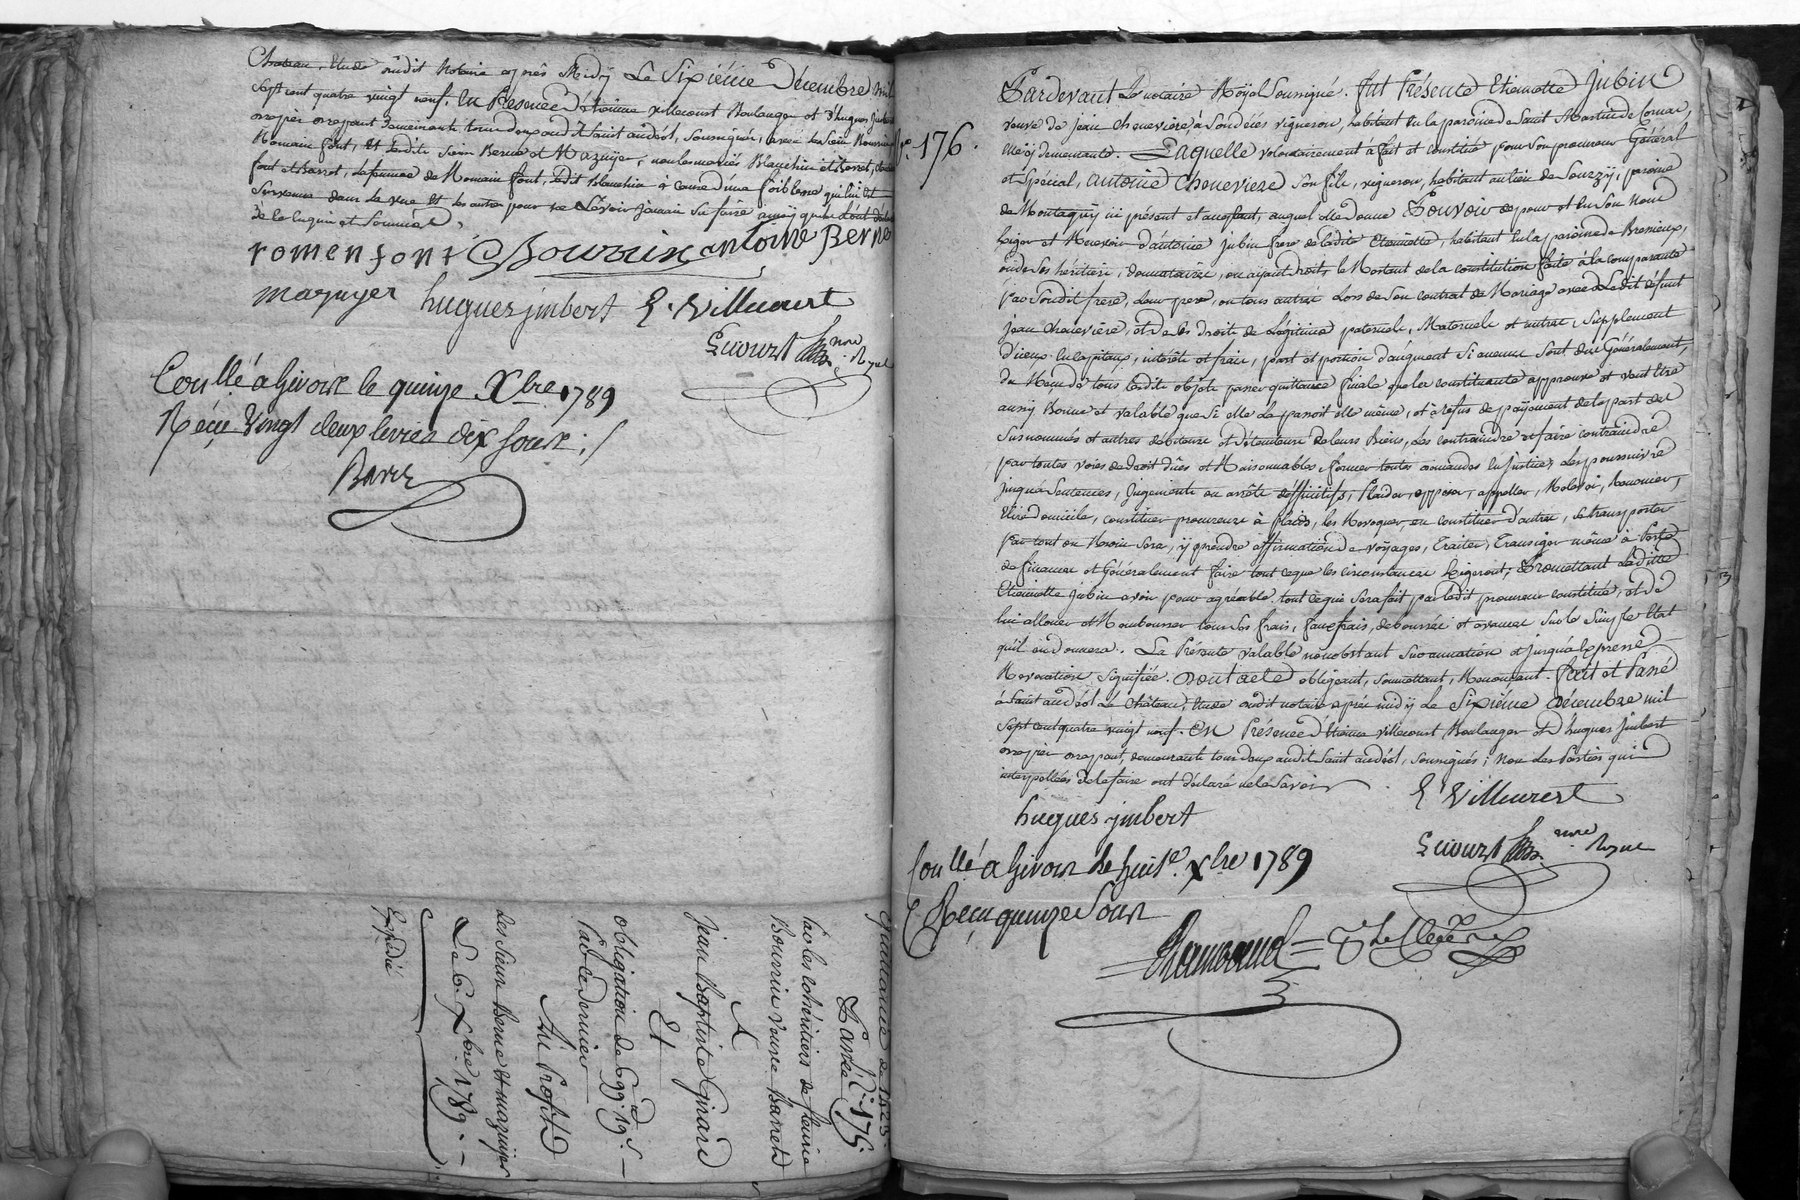 Château, Etude dudit Notaire après Midy Le Sixiéme Décembre mil
sept cent quatre vingt neuf. En Présence d'étienne villecourt Boulanger et d'hugues jmbert
demeurants tous deux audit Saint andéol, soussignés, avec les sieurs Bourrin
Romain font, Et lesdits sieurs Berne et Mazuyer, non lesdits mariés Blanchin
font et Barret, defemme de Romain font, ledit Blanchin à cause d'une foiblesse qui lui est
survenue dans la vue Et les autres pour ne Sçavoir
de ce enquis et Sommés
romen font Bourrin antoine Berne
mazuyer hugues jmbert E. Villecourt
nore Royal
Con.llé a Givors le quinze Xbre 1789
Reçu Vingt deux livres dix sous
Quittance de
Passée N.o 175.
par les cohéritiers de fleurie
Bourrin veuve Barret
A
Jean Baptiste Girard
Et
obligation de 699.# 19.s
Par ce dernier
Au Profit
des Sieurs Berne et mazuyer
Du 6. Xbre 1789.
Expédié
N.o 176.
Pardevant Le notaire Royal Soussigné. fut Présente Etiennette Jubin
veuve de jean Chenevière, à Son décès vigneron, habitant en la paroisse de Saint Martin de Cornas,
elle y demeurante. Laquelle volontairement a fait et constitué pour Son procureur Général
et Spécial, antoine Chenevière Son fils, vigneron, habitant au lieu de Sourzy, paroisse
de Montagny ici présent et acceptant, auquel elle donne Pouvoir de pour et en Son Nom
Exiger et Recevoir d'antoine jubin frere de ladite Etiennette, habitant en la paroisse de Bressieux,
ou de Ses héritiers, donnataires, ou ayant droits, le Restant de la constitution faite à la comparante
par Sondit frere, Leur pere, ou tous autres Lors de Son contrat de Mariage avec Ledit défunt
jean chenevière, et de Ses droits de Légitime paternels, Maternels et autres, Supplement
d'iceux en capitaux, intérêts et frais, part et portion d'augment Si aucune Sont dûs Généralement,
du Recu de tous lesdits objets passer quittance finale que la constituante approuve et veut Etre
aussy Bonne et valable que Si elle La passoit elle même, et à refus de payement de la part des
Susnommés et autres débiteurs et détenteurs de leurs Biens, Les contraindre et faire contraindre
par toutes voies de droit dûes et Raisonnables, former toutes demandes En justice, Les poursuivre
jusqu'à Sentences, jugements ou arrêts déffinitifs, Plaider, opposer, appeller, Relever, Renoncer,
Elire domicile, constituer procureurs à plaids, Les Révoquer, en constituer d'autres, se transporter
par tout ou Besoin Sera, y prendre affirmation de voyages, Traiter, Transiger même à Perte
de finance et Généralement faire tout ceque les circonstances Exigeront; Promettant Laditte
Etiennette jubin avoir pour agréable tout ceque Sera fait par ledit procureur constitué, et de
lui allouer et Rembourser tous Ses frais, faux frais, déboursés et avances Sur le Simple Etat
qu'il en donnera. La Présente valable nonobstant Surannation et jusqu'à Expresse
Révocation Signifiée. Dont acte obligeant, soumettant, Renonçant. fait et Passé
à Saint andéol Le Château, Etude dudit notaire après midy Le Sixiéme décembre mil
Sept cent quatre vingt neuf. En Présence d'étienne villecourt Boulanger et d'hugues jmbert
demeurants tous deux audit Saint andéol, soussignés; Non Les Parties qui
interpellées de le faire ont déclaré ne le Savoir
E Villecourt
hugues jmbert
nore Royal
Con.llé a Givors le huit Xbre 1789
Reçu quinze Sous